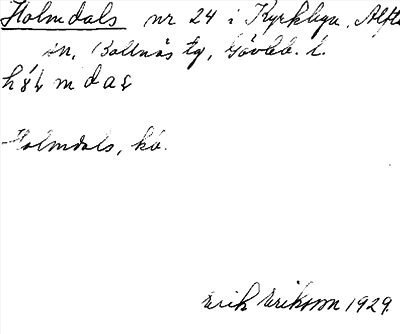 Holmdals nr 24 i Kyrkbyn, Alfta
sn, Bollnäs tg, Gävleb. l.
Holmdals, hå.
Erik Erikson 1929.